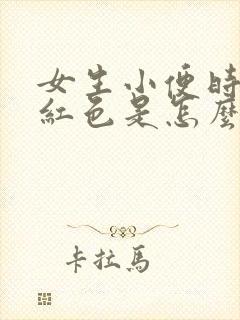 女生小便時
紅色是怎麼
卡拉馬